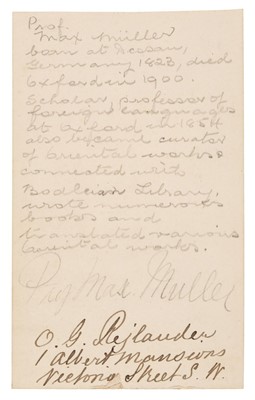 Prof.
Max Müller
born at Dessau,
Germany 1823, died
Oxford in 1900.
Scholar, professor of
foreign languages
at Oxford in 1854
also became curator
of oriental works
connected with
Bodleian Library.
wrote numerous
books and
translated various
Oriental works.
Prof Max. Muller
O. G. Rejlander
1 Albert Mansions
Victoria Street S. W.